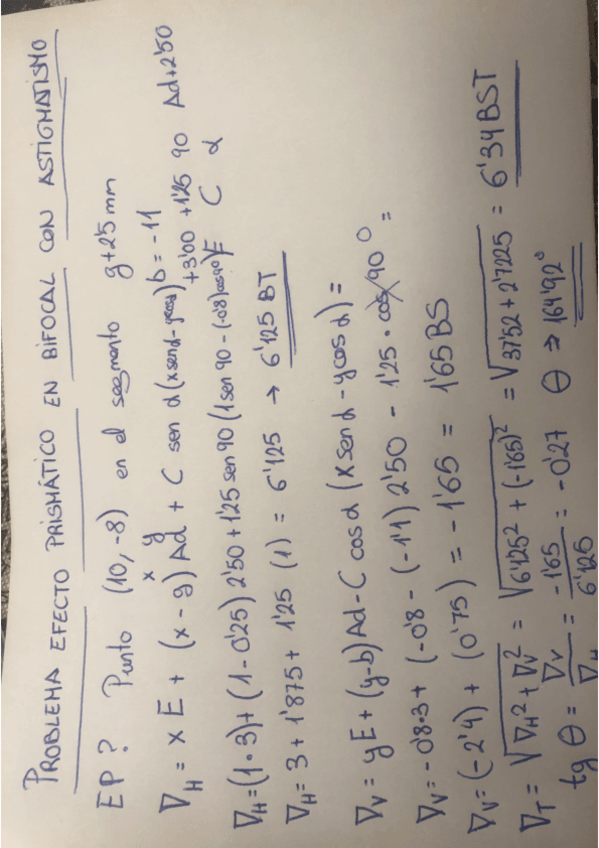 PROBLEMA EFECTO PRISMÁTICO EN BIFOCAL CON ASTIGMATISMO
EP? Punto (10, -8) en el segmento g+2'5 mm
x y b = -11
∇H = x E + (x - g) Ad + C sen α (x sen α - y cos α) +3'00 +1'25 90 Ad+2'50
E C α
∇H = (1·3) + (1 - 0'25) 2'50 + 1'25 sen 90 (1 sen 90 - (-0'8) cos 90)
∇H = 3 + 1'875 + 1'25 (1) = 6'125 → 6'125 BT
∇V = y E + (y-b) Ad - C cos α (x sen α - y cos α) =
∇V = -0'8·3 + (-0'8 - (-1'1) 2'50 - 1'25 · cos 90° =
∇V = (-2'4) + (0'75) = -1'65 = 1'65 BS
∇T = √∇H² + ∇V² = √6'125² + (-1'65)² = √37'52 + 2'7225 = 6'34 BST
tg θ = ∇V/∇H = -1'65/6'125 = -0'27 θ ⇒ 164'92°